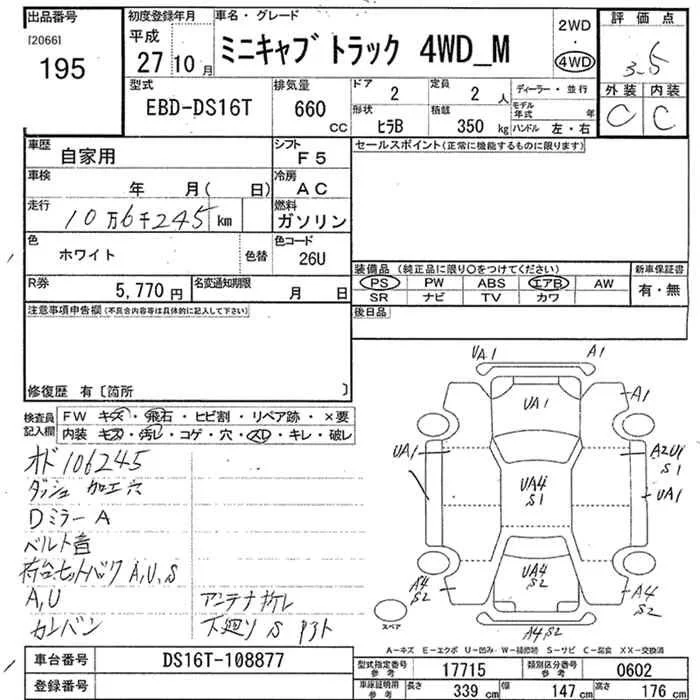 出品番号 初度登録年月 車名・グレード 2WD 評価点
[2066] 平成 ミニキャブトラック 4WD_M ・ 3.5
195 27年10月 4WD 外装 内装
型式 排気量 ドア 定員 ディーラー・並行 C C
EBD-DS16T 660 CC 2 2 人 モデル年式 年
形状 積載
ヒラB 350 kg ハンドル 左・右
車歴 自家用 シフト F5 セールスポイント(正常に機能するものに限ります)
車検 年 月( 日) 冷房 AC
走行 10万6千245 km 燃料 ガソリン
色 ホワイト 色替 色コード 26U
装備品 (純正品に限り○をつけてください) 新車保証書
R券 5,770 円 名変通知期限 月 日 PS PW ABS エアB AW 有・無
SR ナビ TV カワ
注意事項申告欄(不具合内容等は具体的に記入して下さい) 後日品
修復歴 有〔箇所 〕
検査員記入欄 FW キズ・飛石・ヒビ割・リペア跡・×要
内装 キズ・汚レ・コゲ・穴・スレ・キレ・破レ
オド106245
ダッシュ 加工穴
Dミラー A
ベルト音
荷台セットバック A,U,S
A,U アンテナ折レ
カレーバン 下廻リ S
UA1 A1
UA1 A1
UA1 A2U1 S1
UA4 S1 UA1
UA4 S2
A4 S2 A4 S2
A4S2
スペア
A-キズ E-エクボ U-凹み W-補修跡 S-サビ C-腐食 XX-交換済
車台番号 DS16T-108877 型式指定番号 参考 17715 類別区分番号 参考 0602
登録番号 車庫証明用 参考 長さ 339 cm 幅 147 cm 高さ 176 cm